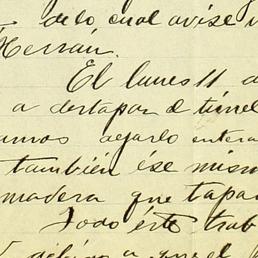 de lo cual avise
Herrán.
El lunes 11
a destapar el túnel
amos dejarlo entera
también ese mism
madera que tapa
Todo éste trab
debido a que el